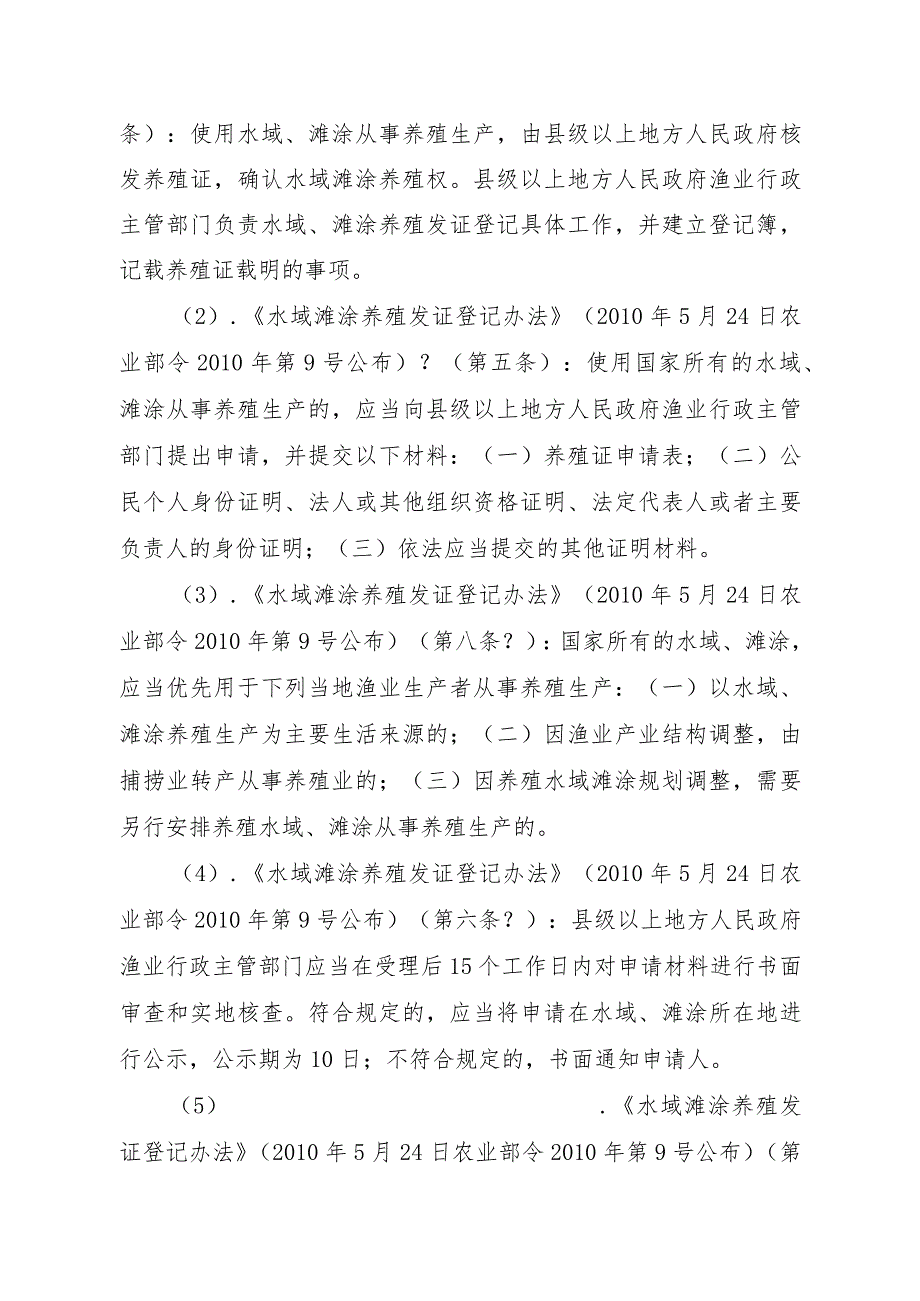 条）：使用水域、滩涂从事养殖生产，由县级以上地方人民政府核
发养殖证，确认水域滩涂养殖权。县级以上地方人民政府渔业行政
主管部门负责水域、滩涂养殖发证登记具体工作，并建立登记簿，
记载养殖证载明的事项。
（2）.《水域滩涂养殖发证登记办法》（2010 年 5 月 24 日农
业部令 2010 年第 9 号公布）？（第五条）：使用国家所有的水域、
滩涂从事养殖生产的，应当向县级以上地方人民政府渔业行政主管
部门提出申请，并提交以下材料：（一）养殖证申请表；（二）公
民个人身份证明、法人或其他组织资格证明、法定代表人或者主要
负责人的身份证明；（三）依法应当提交的其他证明材料。
（3）.《水域滩涂养殖发证登记办法》（2010 年 5 月 24 日农
业部令 2010 年第 9 号公布）（第八条？）：国家所有的水域、滩涂，
应当优先用于下列当地渔业生产者从事养殖生产：（一）以水域、
滩涂养殖生产为主要生活来源的；（二）因渔业产业结构调整，由
捕捞业转产从事养殖业的；（三）因养殖水域滩涂规划调整，需要
另行安排养殖水域、滩涂从事养殖生产的。
（4）.《水域滩涂养殖发证登记办法》（2010 年 5 月 24 日农
业部令 2010 年第 9 号公布）（第六条？）：县级以上地方人民政府
渔业行政主管部门应当在受理后 15 个工作日内对申请材料进行书面
审查和实地核查。符合规定的，应当将申请在水域、滩涂所在地进
行公示，公示期为 10 日；不符合规定的，书面通知申请人。
（5） .《水域滩涂养殖发
证登记办法》（2010 年 5 月 24 日农业部令 2010 年第 9 号公布）（第